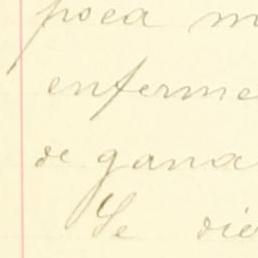 poca m
enferme
de gana
Se die